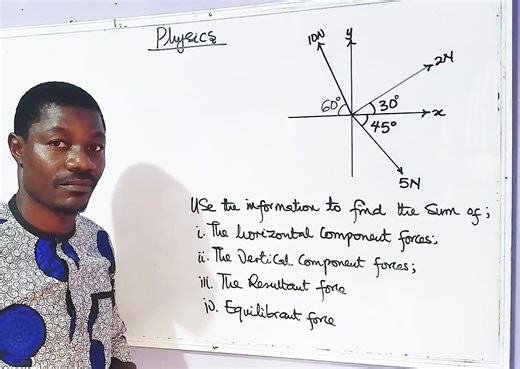 Physics
10N
y
2N
60°
30°
x
45°
5N
Use the information to find the Sum of;
i. The horizontal Component forces;
ii. The Vertical Component forces;
iii. The Resultant force
iv. Equilibrant force